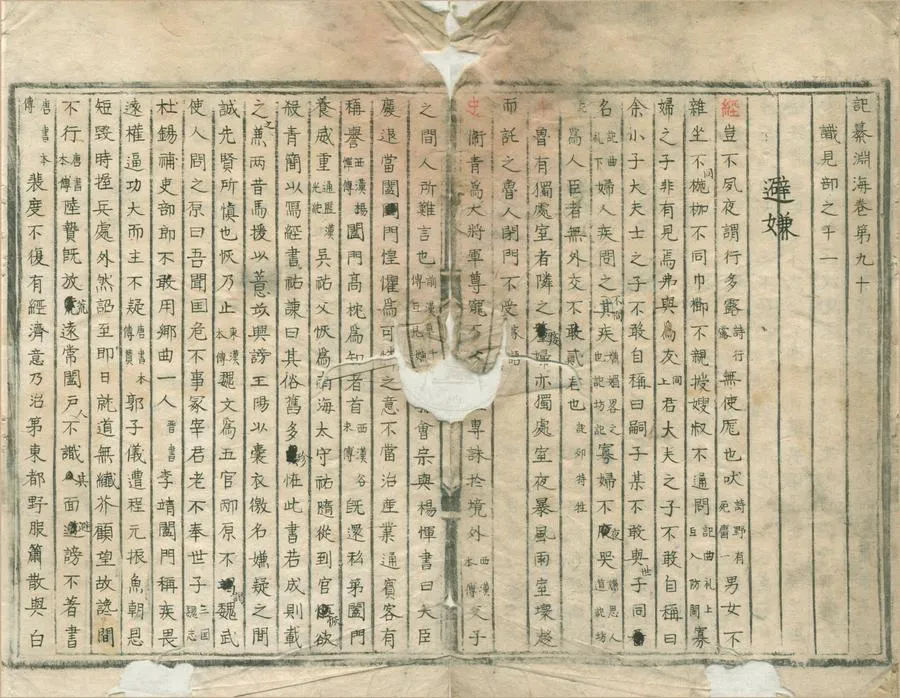 記纂淵海卷第九十
識見部之千一
避嫌
經豈不夙夜謂行多露詩行露無使尨也吠詩野有死麕一男女不
雜坐不同椸枷不同巾櫛不親授嫂叔不通問記曲禮上寡
婦之子非有見焉弗與為友同上君大夫之子不敢自稱曰
余小子大夫士之子不敢自稱曰嗣子某不敢與世子同
名記曲禮下婦人疾問之不問其疾記坊記寡婦不夜哭記坊
為人臣者無外交不敢貳君也記郊特牲
魯有獨處室者隣之嫠婦亦獨處室夜暴風雨室壞趍
而託之魯人閉門不受家語
史衛青為大將軍尊寵專誅於境外西漢本傳父子
之間人所難言也會宗與楊惲書曰大臣
廢退當闔門惶懼為可之意不當治產業通賓客有
稱譽西漢楊惲傳闔門高枕為知者首西漢谷永傳既還私第闔門
養威重吳祐父恢為南海太守祐隨從到官恢欲
殺青簡以寫經書祐諫曰其俗舊多珍怪此書若成則載
之兼兩昔馬援以薏苡興謗王陽以囊衣徼名嫌疑之間
誠先賢所慎也恢乃止東漢本傳魏文為五官郎原不魏武
使人問之原曰吾聞国危不事冢宰君老不奉世子三国魏志
杜錫補吏部郎不敢用鄉曲一人晉書李靖闔門稱疾畏
遠權逼功大而主不疑唐書本傳贊郭子儀遭程元振魚朝恩
短毀時握兵處外然詔至即日就道無纖芥顧望故讒間
不行唐書本傳陸贄既放荒遠常闔戶人不識其面避謗不著書
唐書本傳裴度不復有經濟意乃治第東都野服蕭散與白